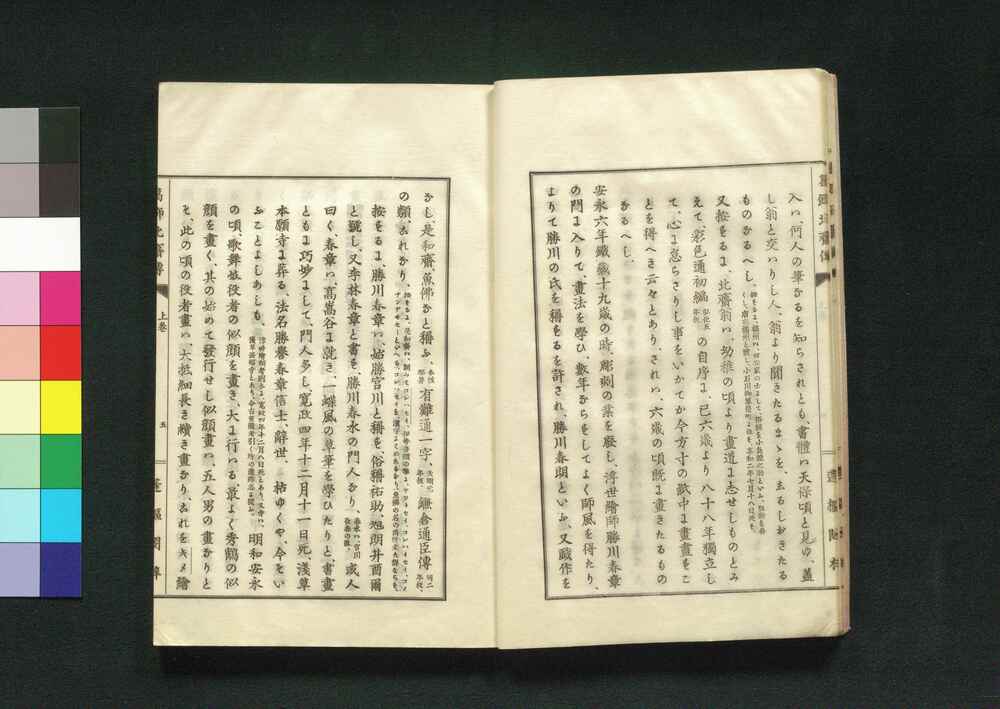 入ハ、何人の筆なるを知らされとも、書體ハ天保頃と見ゆ、蓋
し翁と交ハりし人、翁より聞きたるまゝを、しるしおきたる
ものなるへし、
又按をるに、北齋翁ハ、幼稚の頃より畫道に志せしものとみ
えて、彩色通初編 弘化五年板 の自序に、己六歳より八十八年獨立し
て、心に怠らさりし事をいかてか今方寸の紙中に畫盡をこ
とを得へき云々とあり、されハ、六歳の頃既に畫きたるもの
なるへし、
安永六年鐵藏十九歳の時、彫刻の業を廢し、浮世繪師勝川春章
の門に入りて、畫法を學ひ、數年ならをしてよく師風を得たり、
よりて勝川の氏を稱をるを許され、勝川春朗といふ、又戯作を
なし、是和齋、魚佛なと稱ふ、有難通一字、天明元年板、鎌倉通臣傳 同二年板、
の類、これなり、
按をるに、勝川春章ハ、始勝宮川と稱を、俗稱祐助、旭朗井酉爾
と號し、又李林春章と書を、勝川春水の門人なり、或人
曰く、春章ハ、高嵩谷に就き、一蝶風の草筆を學ひたりと、書畫
ともに巧妙にして、門人多し、寛政四年十二月十一日死、淺草
本願寺に葬る、法名勝譽春章信士、辭世、枯ゆくや、今そい
ふことよしあしも、明和安永
の頃、歌舞妓役者の似顔を畫き、大に行ハる、最よく秀鶴の似
顔を畫く、其の始めて發行せし似顔畫ハ、五人男の畫なりと
そ、此の頃の役者畫ハ、大抵細長き續き畫なり、これをキメ繪
上卷
五